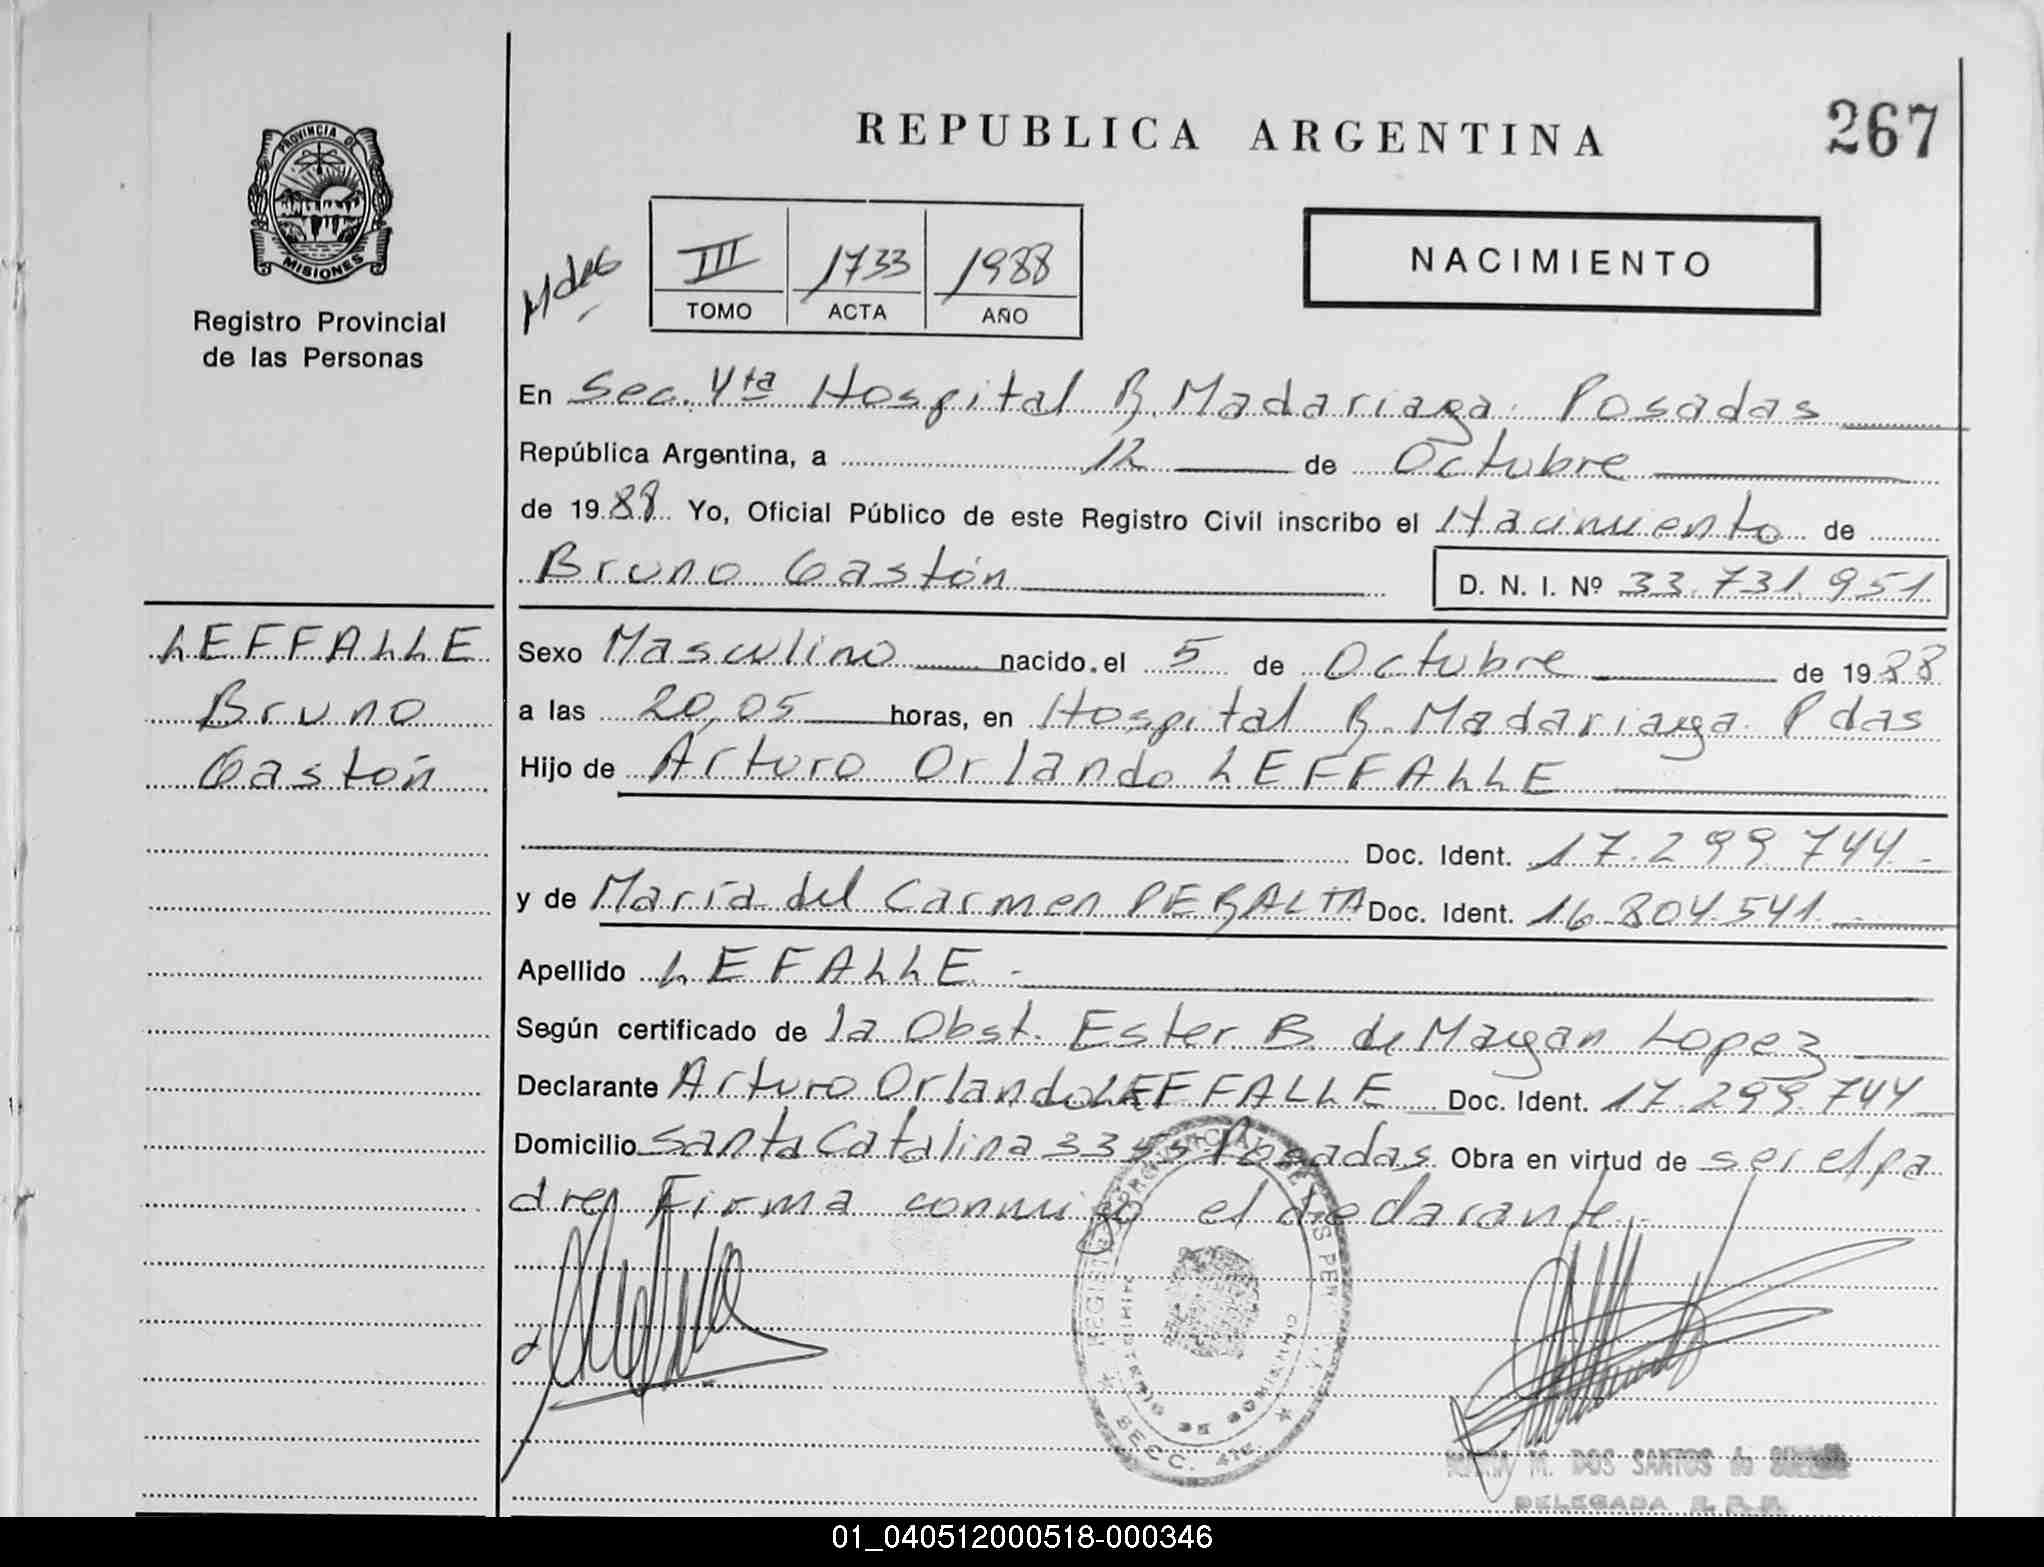 PROVINCIA DE
MISIONES
Registro Provincial
de las Personas
REPUBLICA ARGENTINA
267
III 1733 1988
TOMO ACTA AÑO
NACIMIENTO
En Sec. 4ta Hospital R. Madariaga. Posadas
República Argentina, a 12 de Octubre
de 1988 Yo, Oficial Público de este Registro Civil inscribo el Nacimiento de
Bruno Gastón D. N. I. Nº 33.731.951
LEFFALLE
Bruno
Gastón
Sexo Masculino nacido el 5 de Octubre de 1988
a las 20,05 horas, en Hospital R. Madariaga. Pdas
Hijo de Arturo Orlando LEFFALLE
Doc. Ident. 17.299.744
y de María del Carmen PERALTA Doc. Ident. 16.804.541
Apellido LEFALLE
Según certificado de la Obst. Ester B. de Maygan Lopez
Declarante Arturo Orlando LEFFALLE Doc. Ident. 17.299.744
Domicilio Santa Catalina Posadas Obra en virtud de ser el pa
dre, Firma conmigo el declarante
SECC. 4ta
MARIA M. DOS SANTOS de
DELEGADA R. P. P.
01_040512000518-000346